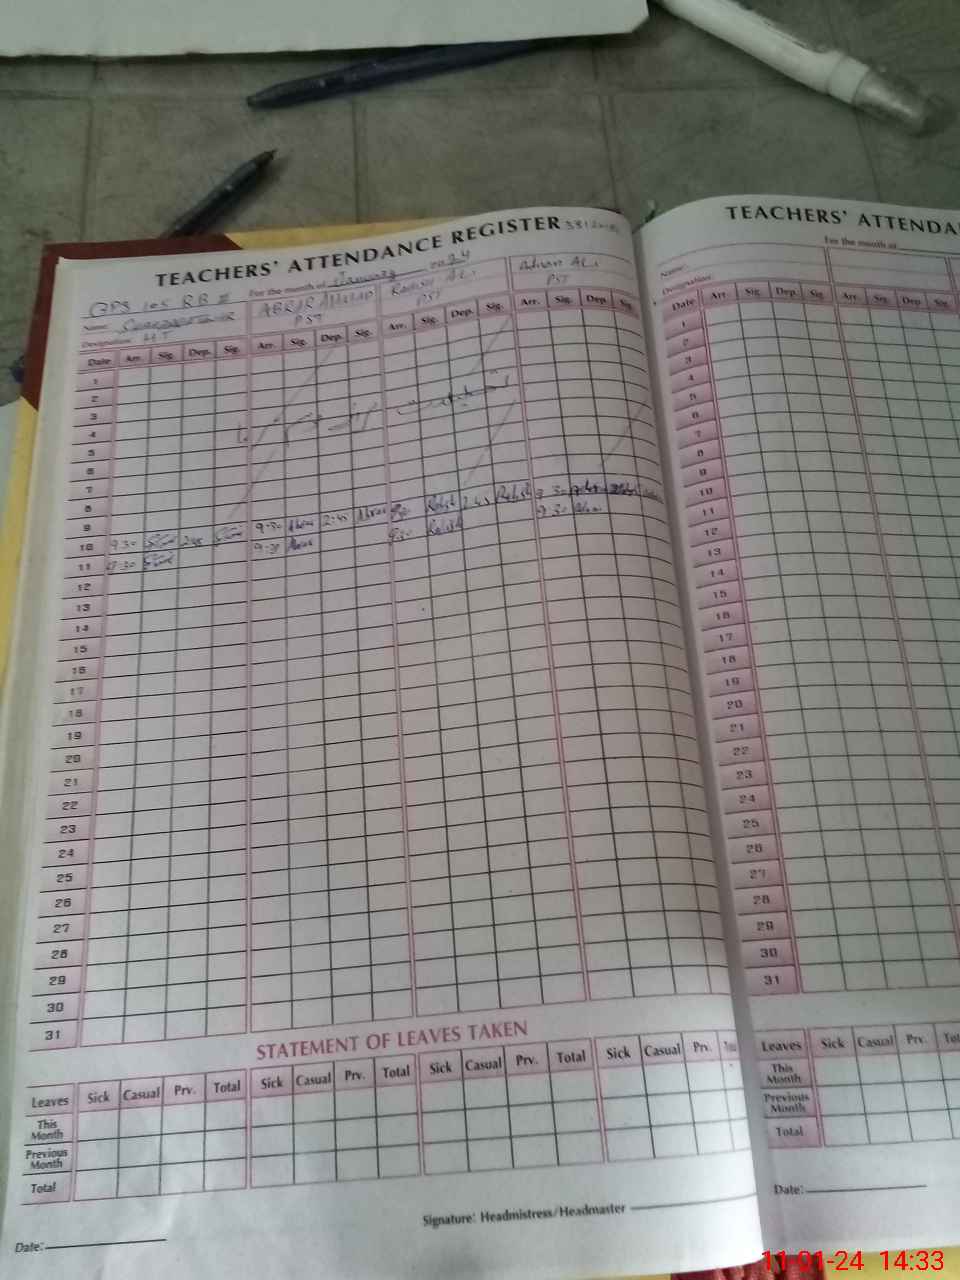 TEACHERS' ATTENDANCE REGISTER
For the month of January 2024
GPS 105 RB II
Name:
ABRAR AHMAD
Adnan ALi
Designation: HT
PST
PST
PST
Date Arr. Sig. Dep. Sig. Arr. Sig. Dep. Sig. Arr. Sig. Dep. Sig. Arr. Sig. Dep. Sig.
1
2
3
4
5
6
7
8
9
10 9:30 2:45 9:30 Abrar 2:45 Abrar 2:45
11 9:30 9:30 Abrar 9:30 9:30
12
13
14
15
16
17
18
19
20
21
22
23
24
25
26
27
28
29
30
31
STATEMENT OF LEAVES TAKEN
Leaves Sick Casual Prv. Total Sick Casual Prv. Total Sick Casual Prv. Total Sick Casual Prv.
This Month
Previous Month
Total
Signature: Headmistress/Headmaster
Date:
TEACHERS' ATTENDA
For the month of
Name:
Designation:
Date Arr. Sig. Dep. Sig. Arr. Sig. Dep. Sig.
1
2
3
4
5
6
7
8
9
10
11
12
13
14
15
16
17
18
19
20
21
22
23
24
25
26
27
28
29
30
31
Leaves Sick Casual Prv. Tot
This Month
Previous Month
Total
Date:
11-01-24 14:33